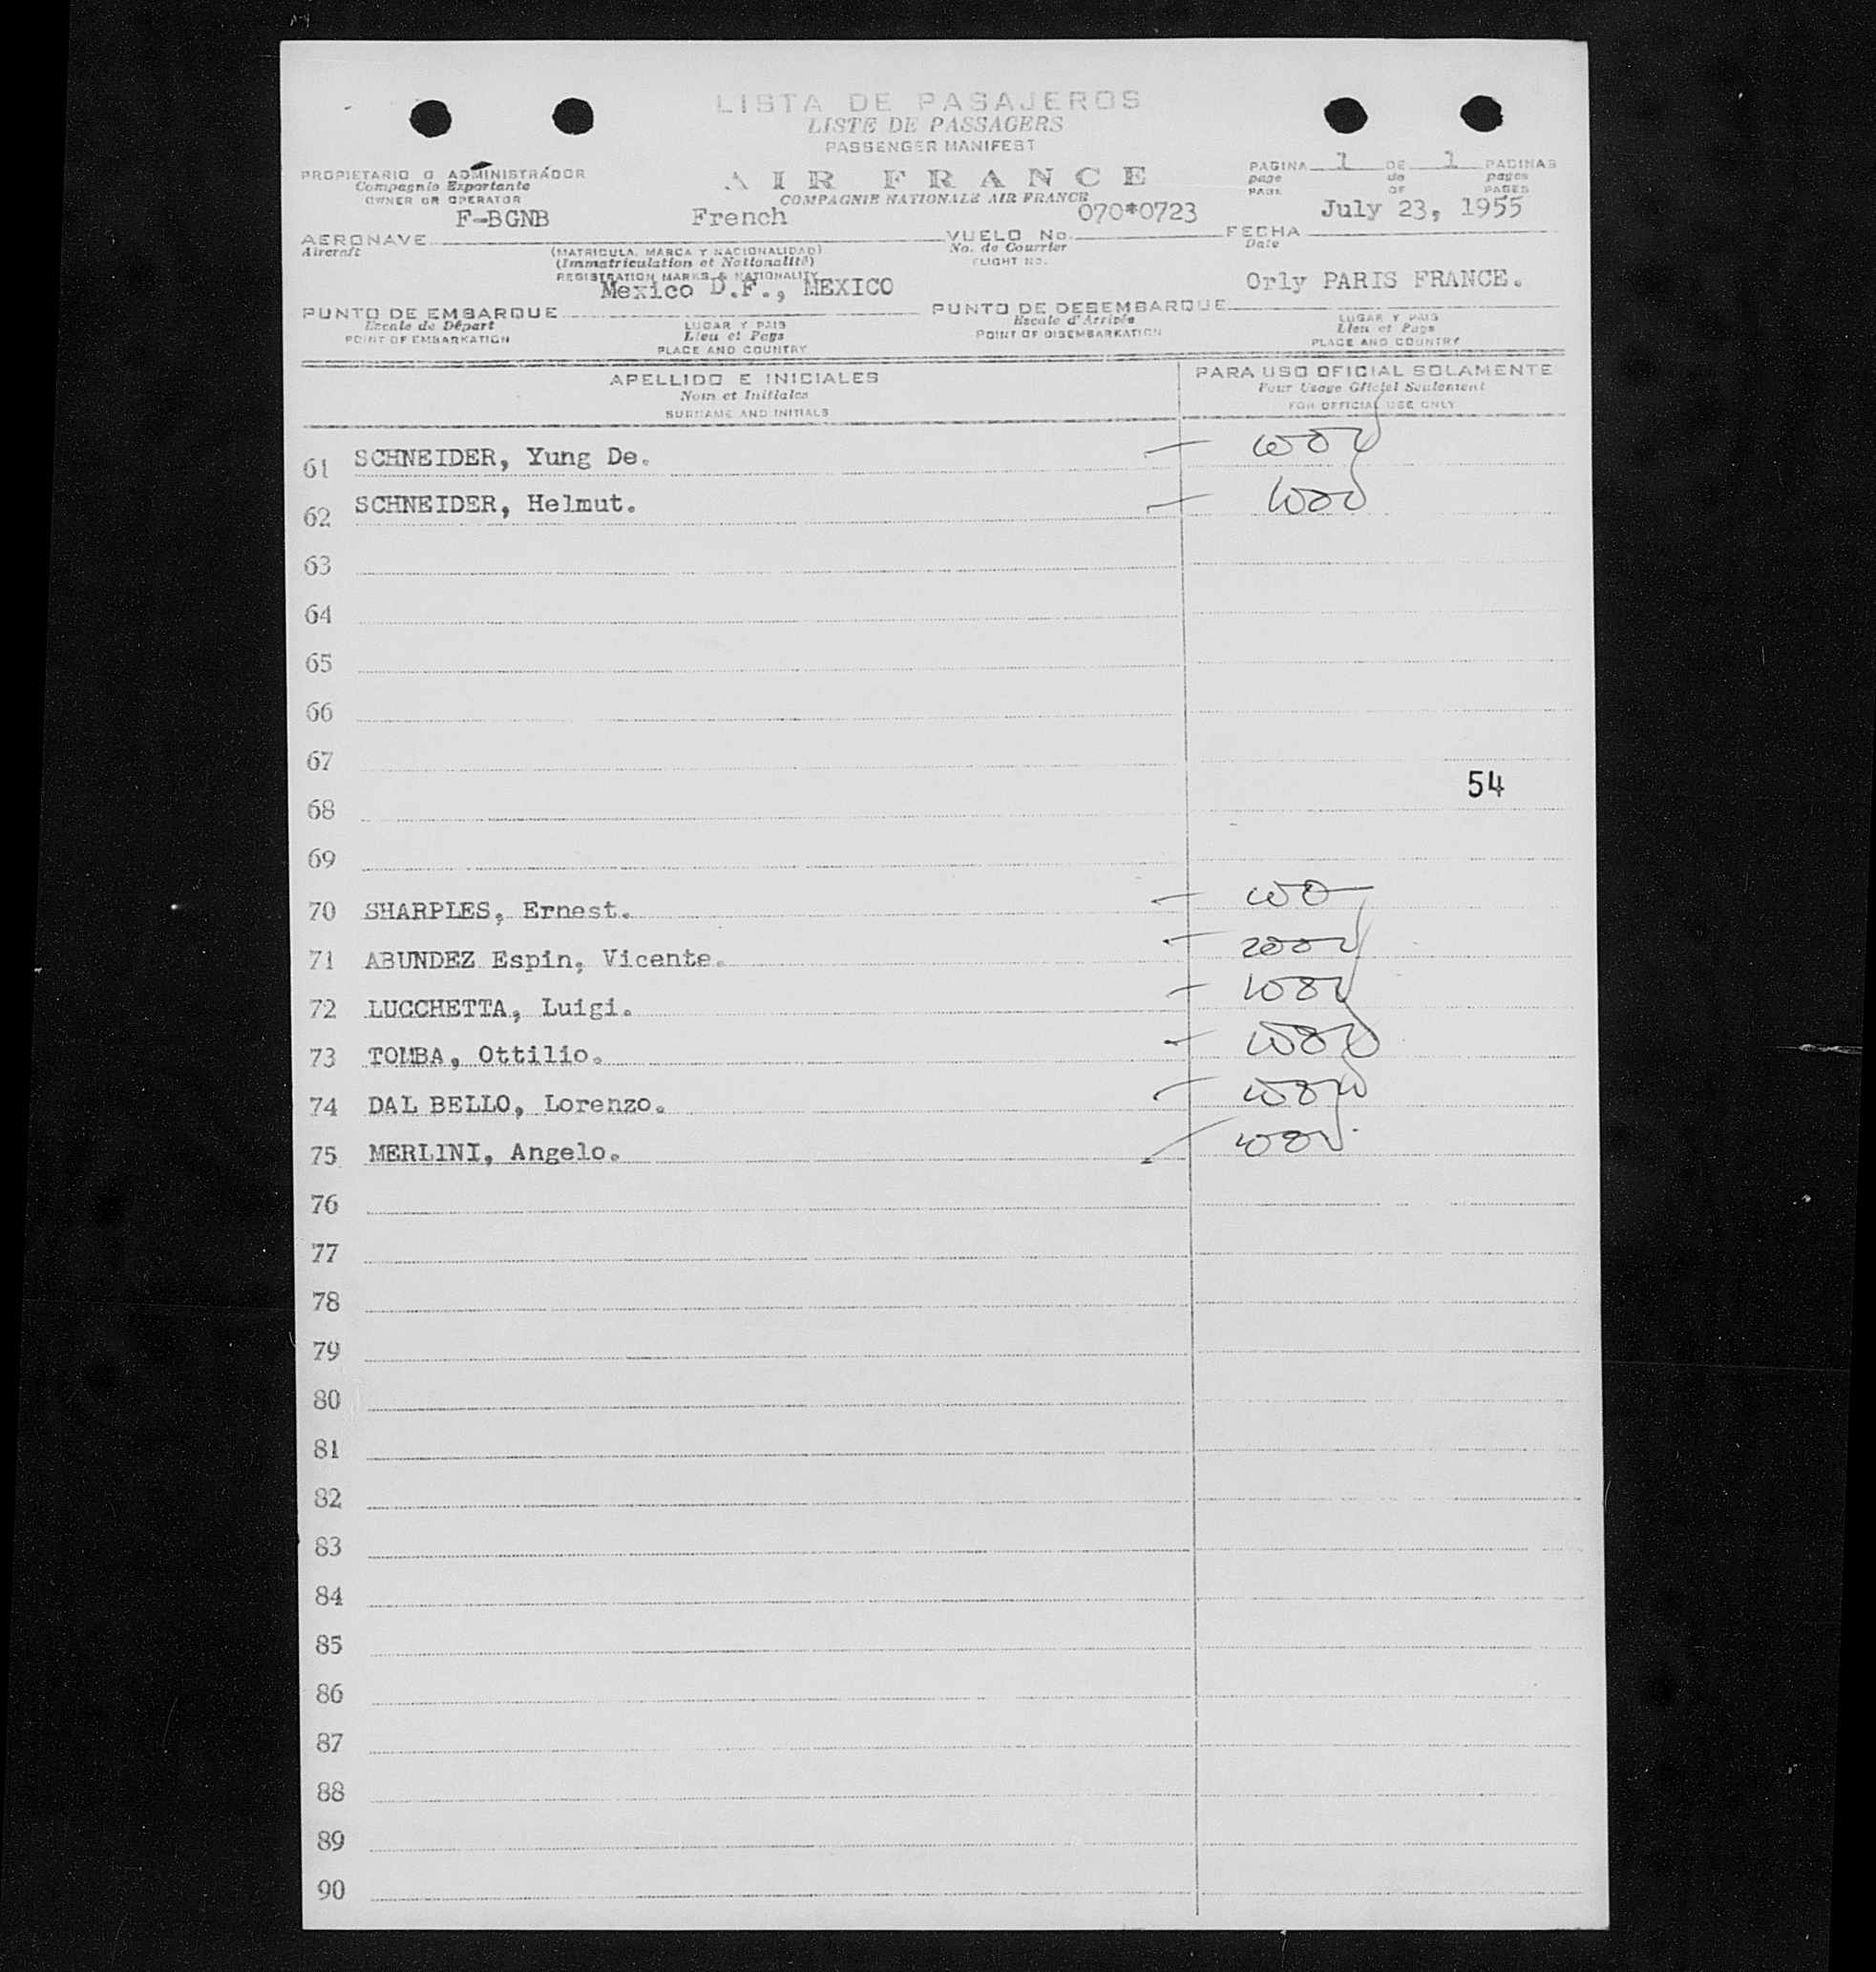 LISTA DE PASAJEROS
LISTE DE PASSAGERS
PASSENGER MANIFEST
PROPIETARIO O ADMINISTRADOR
Compagnie Exportante
OWNER OR OPERATOR
AIR FRANCE
COMPAGNIE NATIONALE AIR FRANCE
PAGINA 1 DE 1 PAGINAS
page de pages
PAGE OF PAGES
F-BGNB French 070*0723 July 23, 1955
AERONAVE VUELO No. FECHA
Aircraft (MATRICULA, MARCA Y NACIONALIDAD) No. de Courrier Date
(Immatriculation et Nationalité) FLIGHT NO.
REGISTRATION MARKS & NATIONALITY
Mexico D.F., MEXICO Orly PARIS FRANCE.
PUNTO DE EMBARQUE PUNTO DE DESEMBARQUE
Escale de Départ LUGAR Y PAIS Escale d'Arrivée LUGAR Y PAIS
POINT OF EMBARKATION Lieu et Pays POINT OF DISEMBARKATION Lieu et Pays
PLACE AND COUNTRY PLACE AND COUNTRY
APELLIDO E INICIALES PARA USO OFICIAL SOLAMENTE
Nom et Initiales Pour Usage Officiel Seulement
SURNAME AND INITIALS FOR OFFICIAL USE ONLY
61 SCHNEIDER, Yung De.
62 SCHNEIDER, Helmut.
63
64
65
66
67
54
68
69
70 SHARPLES, Ernest.
71 ABUNDEZ Espin, Vicente.
72 LUCCHETTA, Luigi.
73 TOMBA, Ottilio.
74 DAL BELLO, Lorenzo.
75 MERLINI, Angelo.
76
77
78
79
80
81
82
83
84
85
86
87
88
89
90